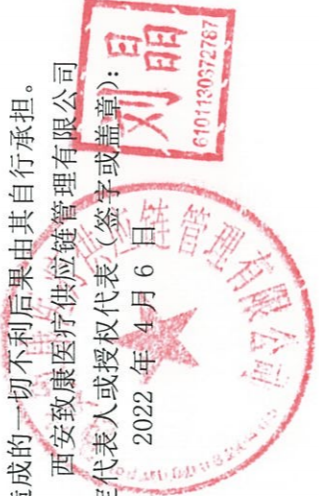 造成的一切不利后果由其自行承担。
西安致康医疗供应链管理有限公司
定代表人或授权代表(签字或盖章):
2022 年 4 月 6 日
刘晶
6101130672787
供应链管理有限公司